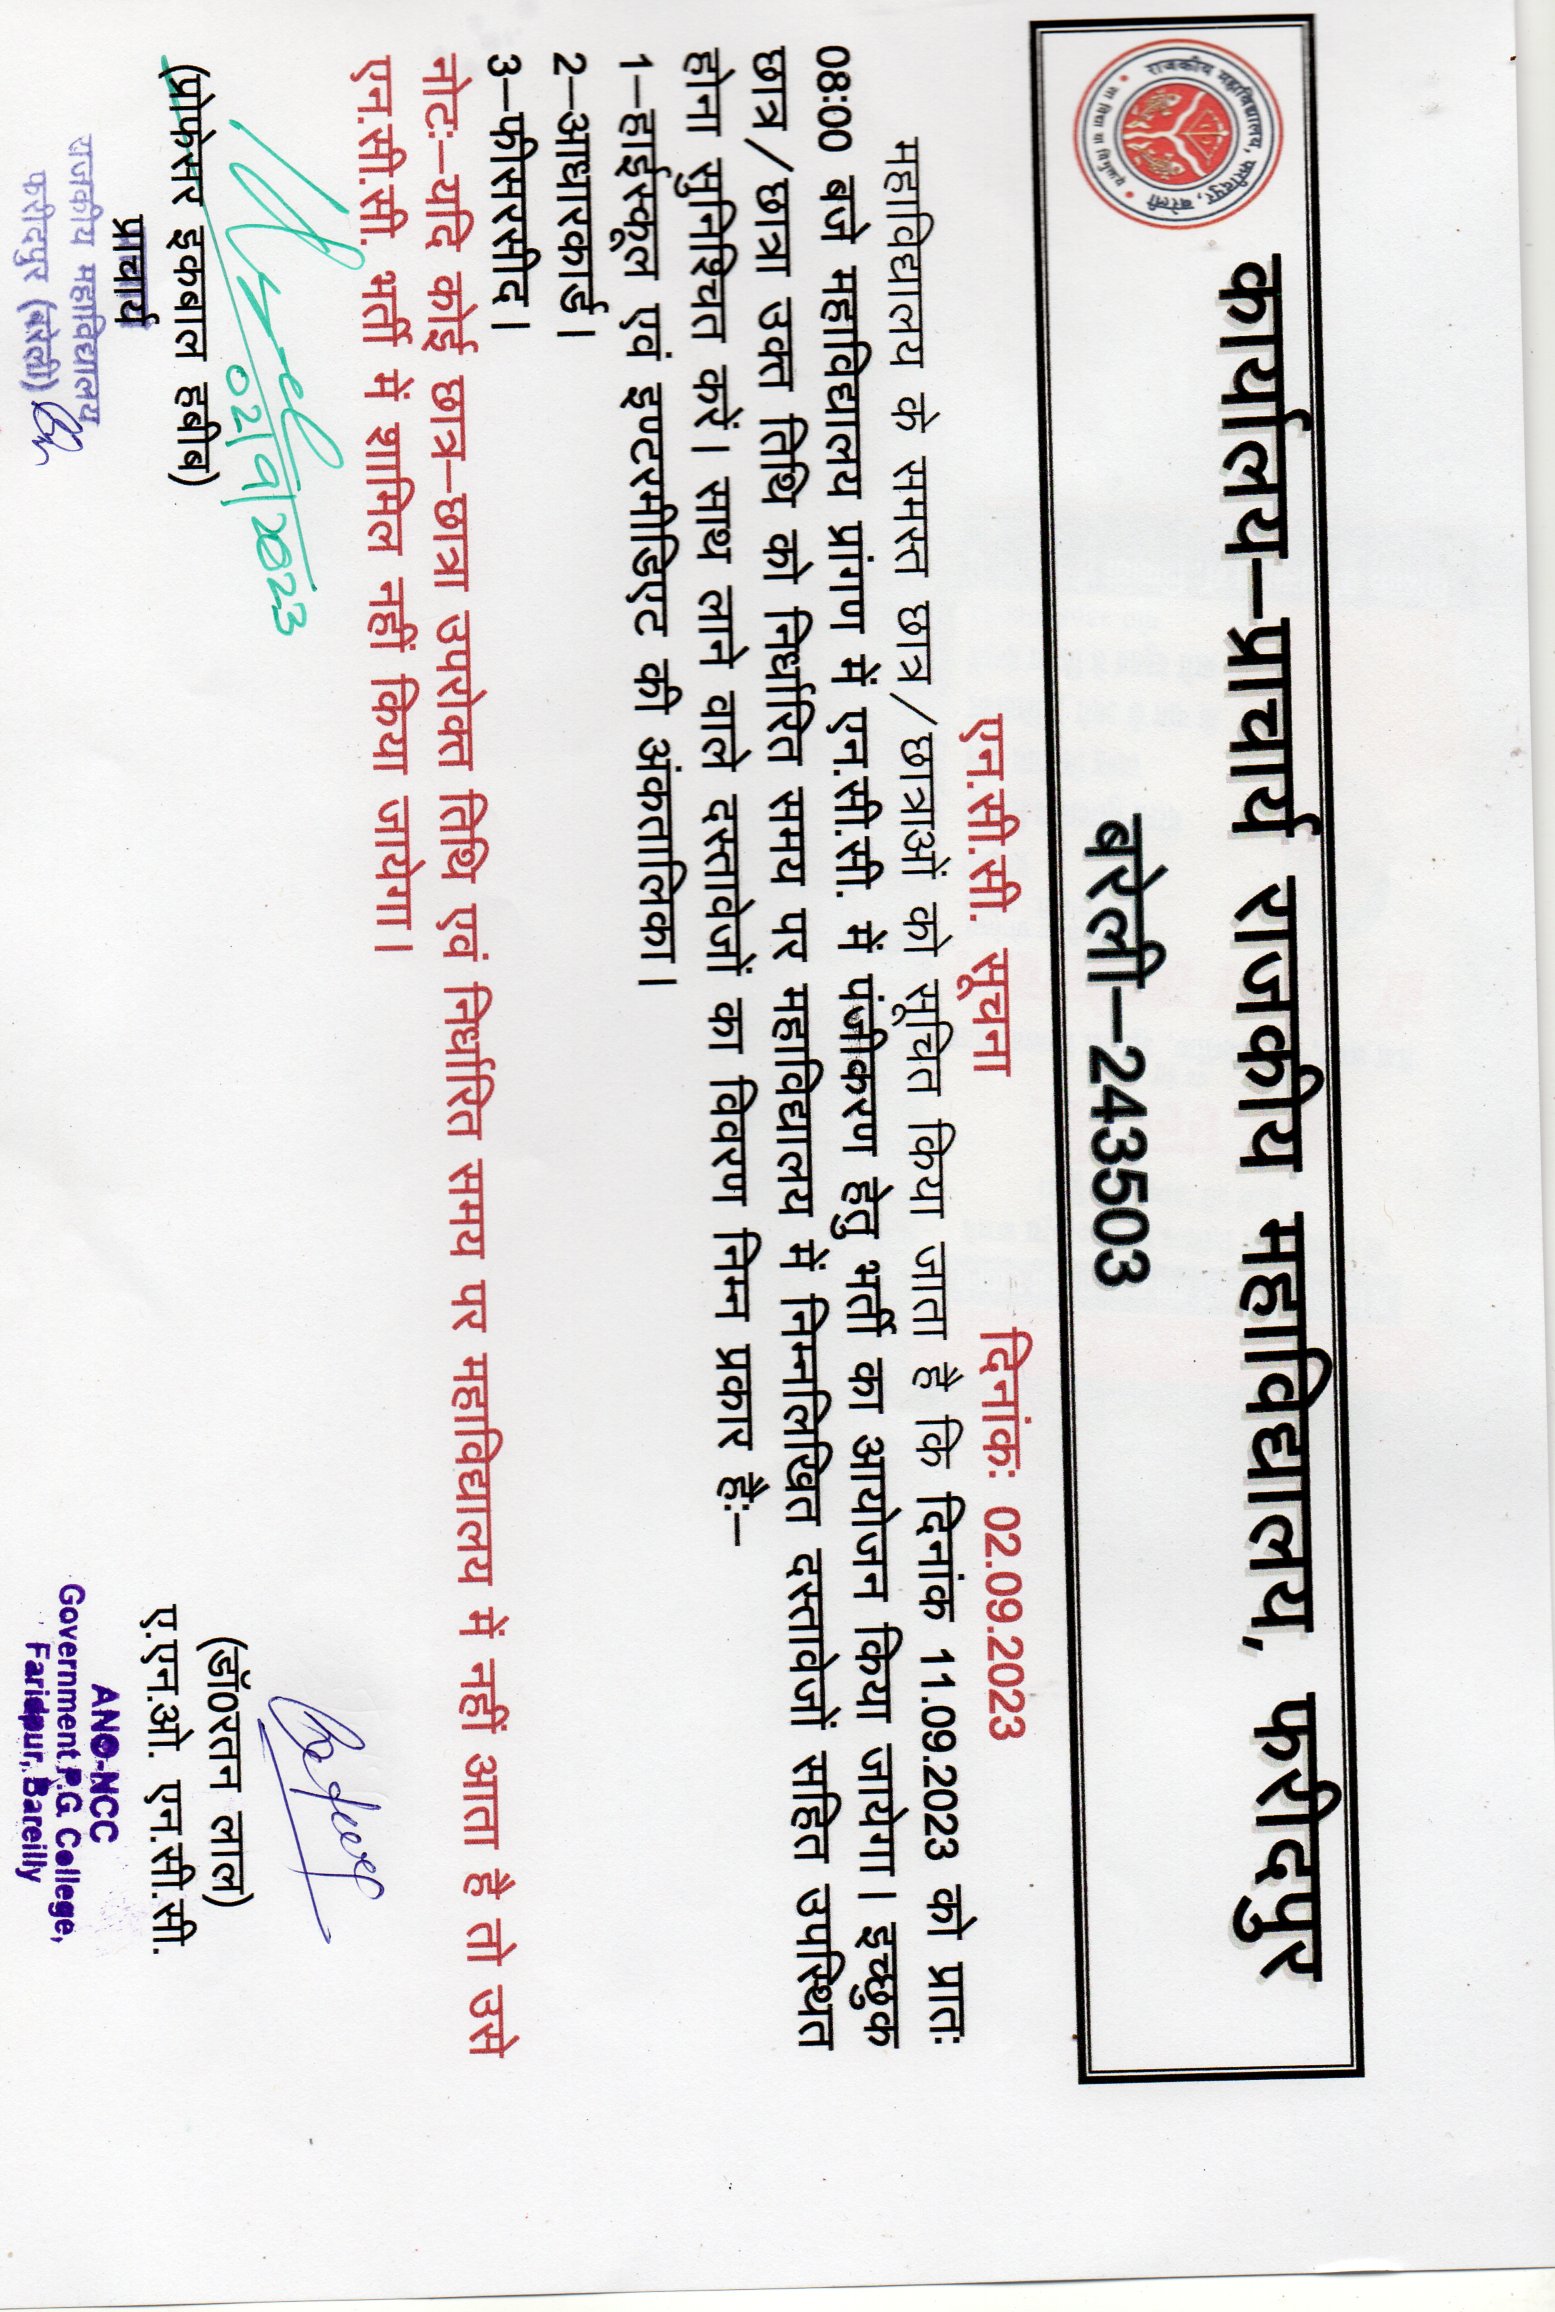 राजकीय महाविद्यालय, फरीदपुर, बरेली
सा विद्या या विमुक्तये
कार्यालय–प्राचार्य राजकीय महाविद्यालय, फरीदपुर
बरेली–243503
एन.सी.सी. सूचना दिनांकः 02.09.2023
महाविद्यालय के समस्त छात्र/छात्राओं को सूचित किया जाता है कि दिनांक 11.09.2023 को प्रातः
08:00 बजे महाविद्यालय प्रांगण में एन.सी.सी. में पंजीकरण हेतु भर्ती का आयोजन किया जायेगा। इच्छुक
छात्र/छात्रा उक्त तिथि को निर्धारित समय पर महाविद्यालय में निम्नलिखित दस्तावेजों सहित उपस्थित
होना सुनिश्चित करें। साथ लाने वाले दस्तावेजों का विवरण निम्न प्रकार हैः–
1–हाईस्कूल एवं इण्टरमीडिएट की अंकतालिका।
2–आधारकार्ड।
3–फीसरसीद।
नोटः–यदि कोई छात्र–छात्रा उपरोक्त तिथि एवं निर्धारित समय पर महाविद्यालय में नहीं आता है तो उसे
एन.सी.सी. भर्ती में शामिल नहीं किया जायेगा।
02/9/2023
(प्रोफेसर इकबाल हबीब)
प्राचार्य
राजकीय महाविद्यालय
फरीदपुर (बरेली)
(डॉ0रतन लाल)
ए.एन.ओ. एन.सी.सी.
ANO-NCC
Government P.G. College,
Faridpur, Bareilly